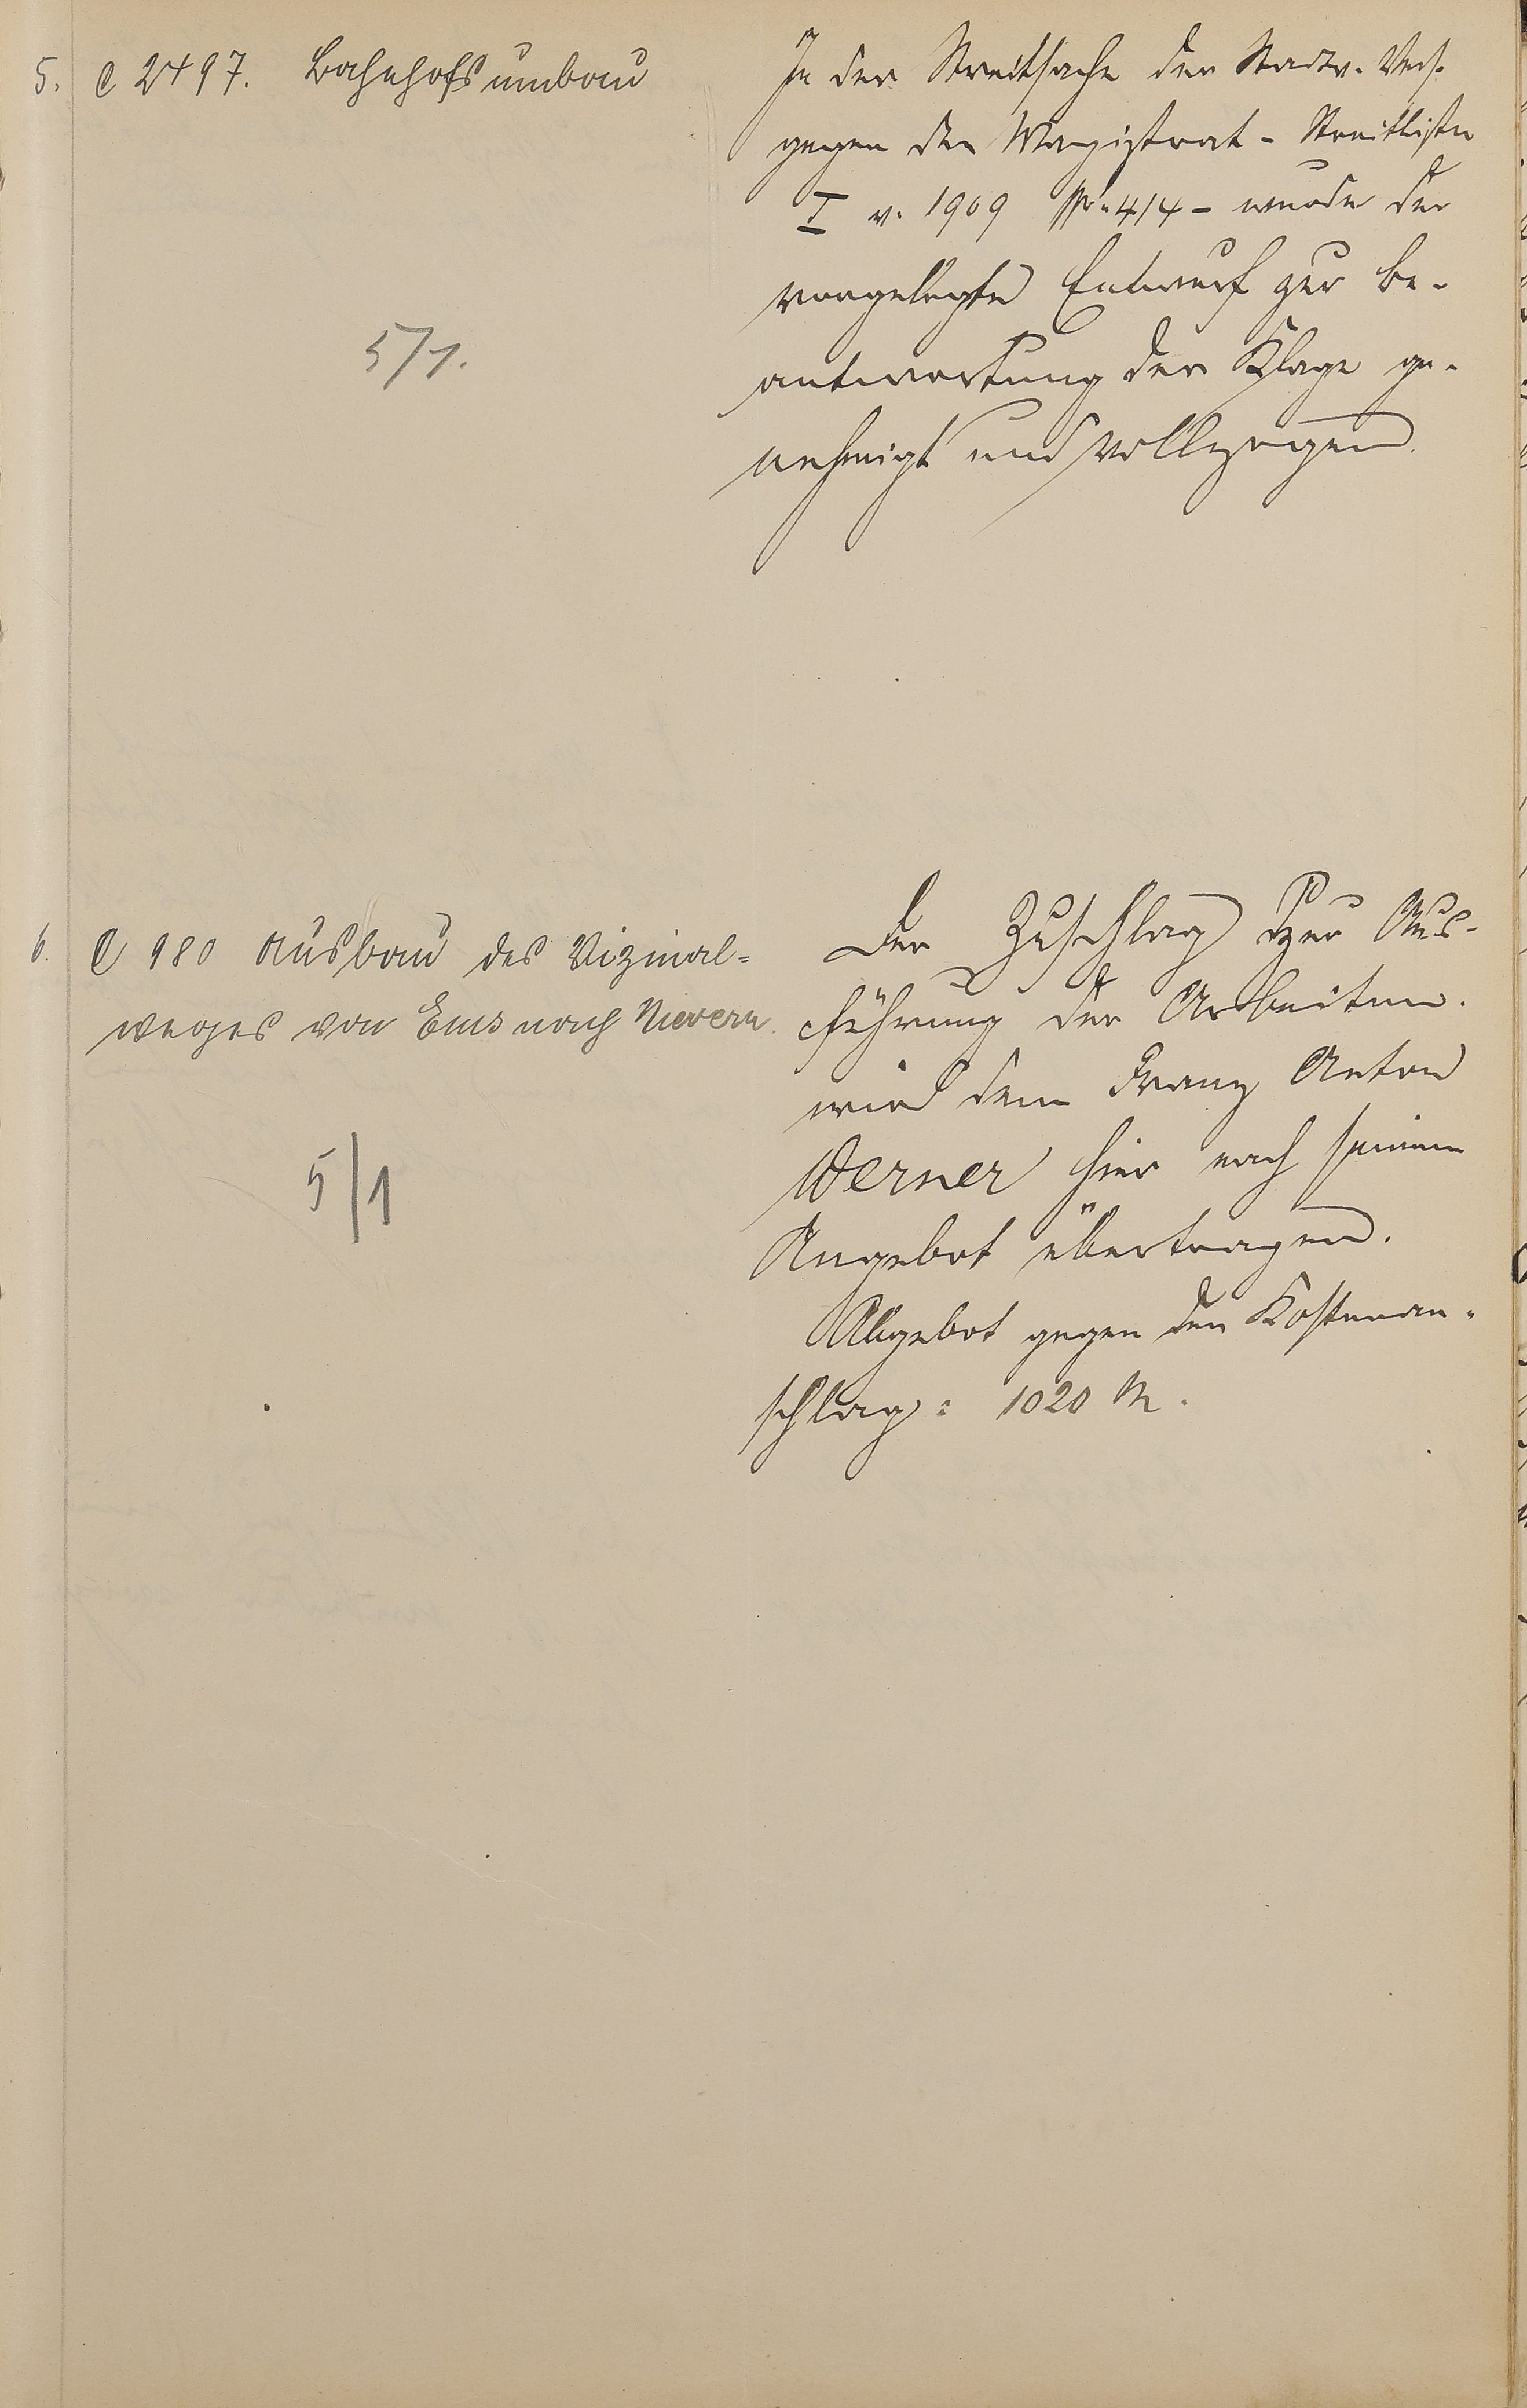 5. C 2497. Bahnhofsumbau
5/1.
In der Streitsache der Stadtv. Vers.
gegen den Magistrat - Streitliste
I v. 1909 Nr. 414 - wurde der
vorgelegte Entwurf zur Be-
antwortung der Klage ge-
nehmigt und vollzogen.
6. C 980 Ausbau des Vizinal=
weges von Ems nach Nievern.
5/1
Der Zuschlag zur Aus-
führung der Arbeiten
wird dem Franz Anton
Werner hier nach seinem
Angebot übertragen.
Abgebot gegen den Kostenan-
schlag: 1020 M.